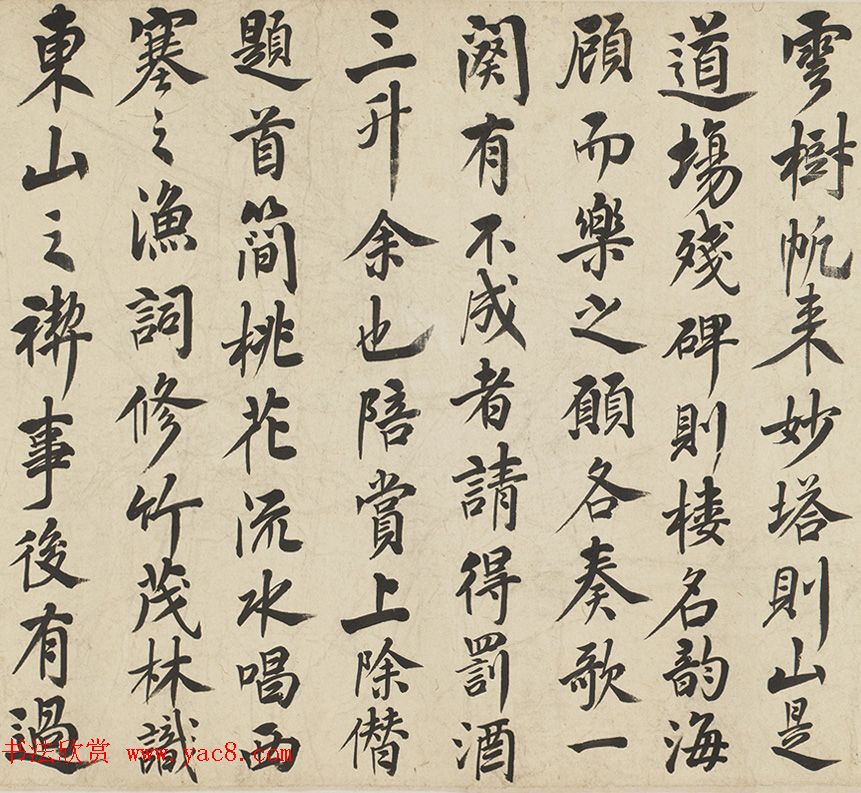 雲樹帆来妙塔則山是
道塲殘碑則楼名韵海
顧而樂之願各奏歌一
闋有不成者請得罰酒
三升余也陪賞上除僭
題首簡桃花流水唱西
塞之漁詞修竹茂林識
東山之禊事後有過
书法欣赏 www.yac8.com